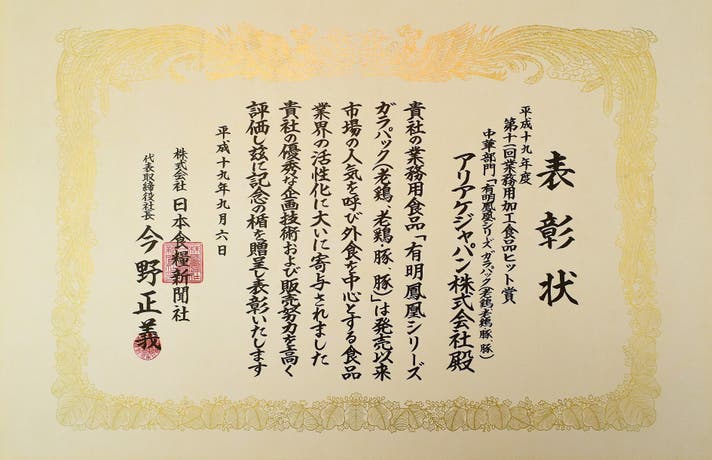 表彰状
平成十九年度
第十一回業務用加工食品ヒット賞
中華部門「有明鳳凰シリーズ ガラパック(老鶏、老鶏・豚、豚)」
アリアケジャパン株式会社殿
貴社の業務用食品「有明鳳凰シリーズ
ガラパック(老鶏、老鶏・豚、豚)」は発売以来
市場の人気を呼び外食を中心とする食品
業界の活性化に大いに寄与されました
貴社の優秀な企画技術および販売努力を高く
評価し玆に記念の楯を贈呈し表彰いたします
平成十九年九月六日
株式会社 日本食糧新聞社
代表取締役社長 今野正義